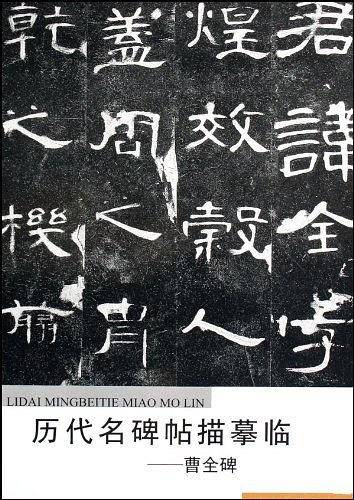 君諱全字
煌效穀人
蓋周之胄
乾之機翦
LIDAI MINGBEITIE MIAO MO LIN
历代名碑帖描摹临
——曹全碑